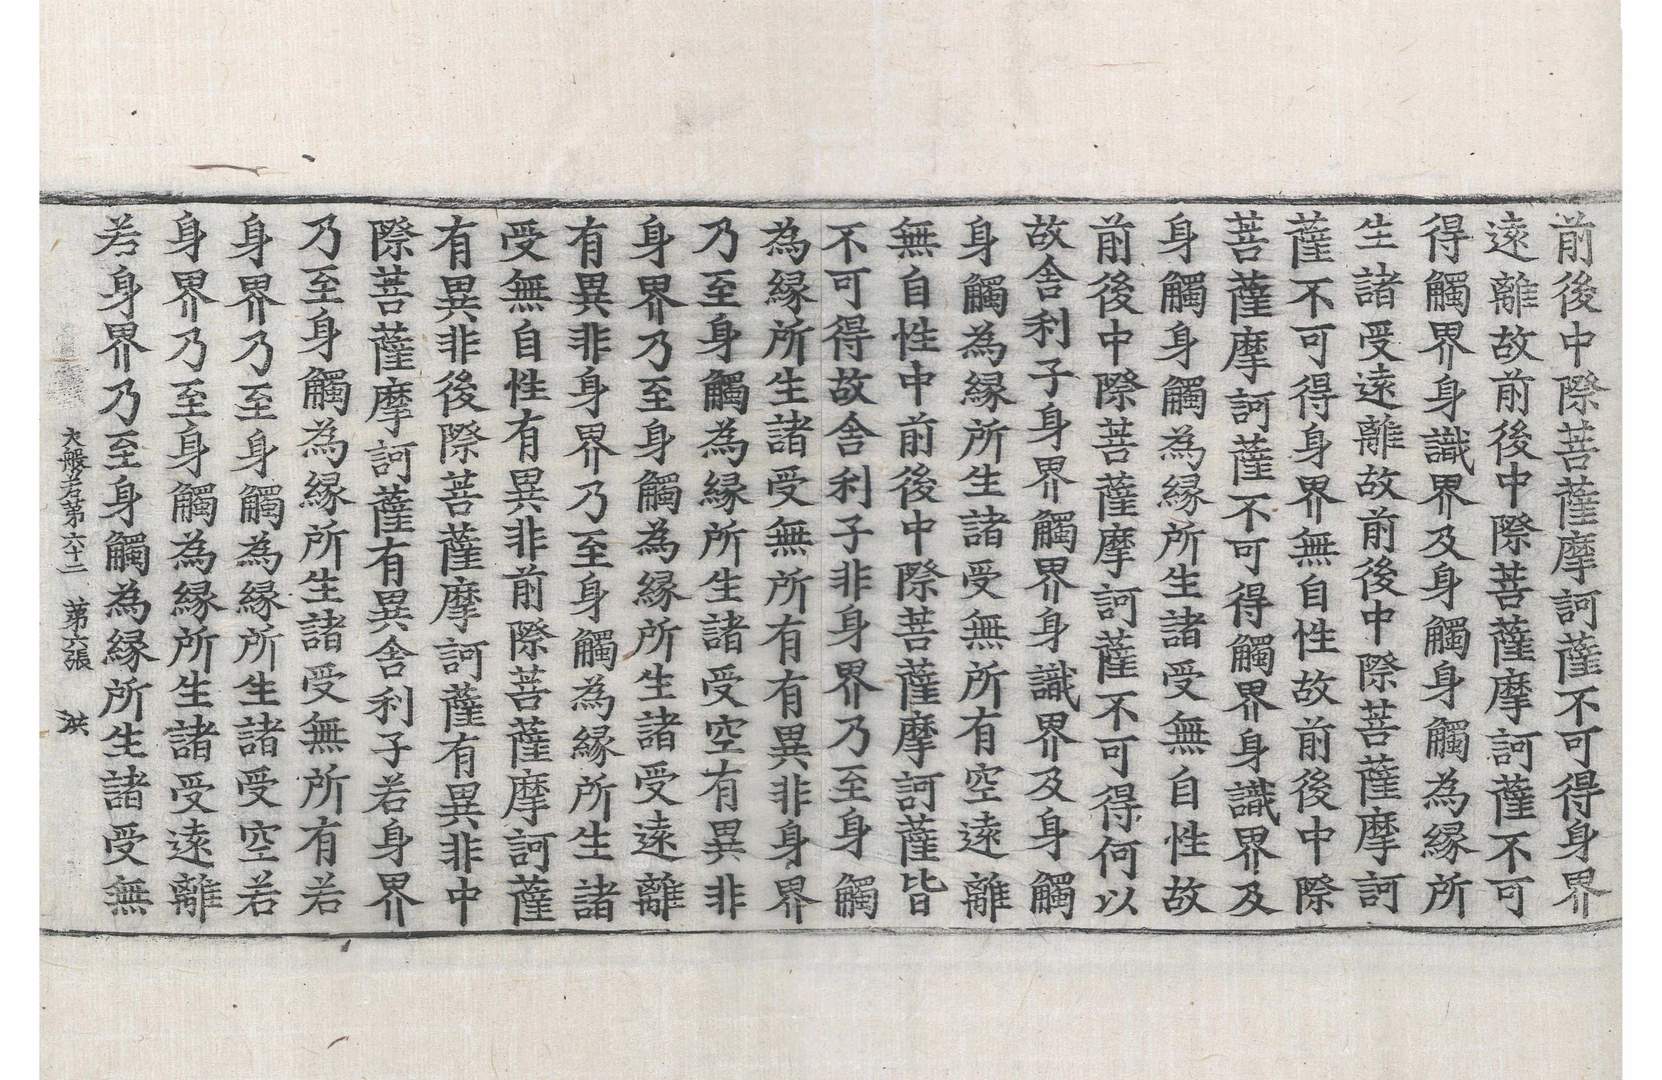 前後中際菩薩摩訶薩不可得身界
遠離故前後中際菩薩摩訶薩不可
得觸界身識界及身觸身觸為緣所
生諸受遠離故前後中際菩薩摩訶
薩不可得身界無自性故前後中際
菩薩摩訶薩不可得觸界身識界及
身觸身觸為緣所生諸受無自性故
前後中際菩薩摩訶薩不可得何以
故舍利子身界觸界身識界及身觸
身觸為緣所生諸受無所有空遠離
無自性中前後中際菩薩摩訶薩皆
不可得故舍利子非身界乃至身觸
為緣所生諸受無所有有異非身界
乃至身觸為緣所生諸受空有異非
身界乃至身觸為緣所生諸受遠離
有異非身界乃至身觸為緣所生諸
受無自性有異非前際菩薩摩訶薩
有異非後際菩薩摩訶薩有異非中
際菩薩摩訶薩有異舍利子若身界
乃至身觸為緣所生諸受無所有若
身界乃至身觸為緣所生諸受空若
身界乃至身觸為緣所生諸受遠離
若身界乃至身觸為緣所生諸受無
大般若第六十二 第六張 洪